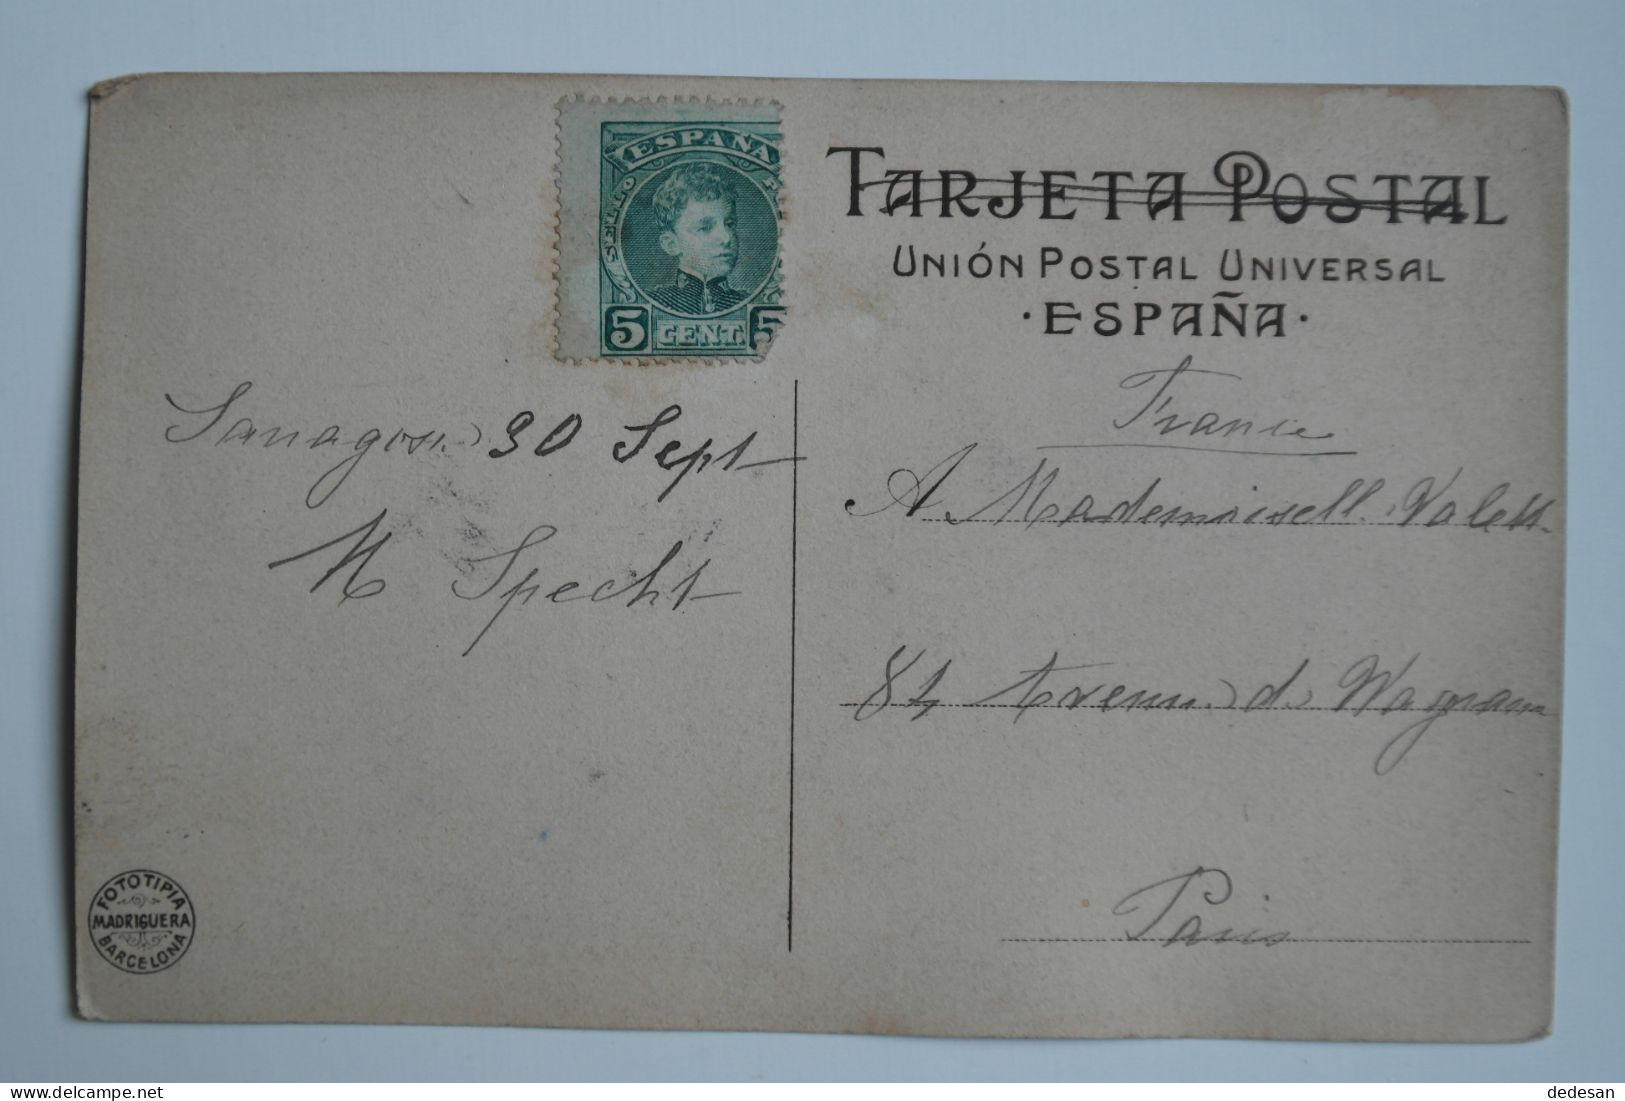 ESPAÑA
SELLO
5 CENT. 5
TARJETA POSTAL
UNIÓN POSTAL UNIVERSAL
· ESPAÑA ·
30 Sept
M Specht
France
A Mademoisell
Avenu de Wagram
Paris
FOTOTIPIA
MADRIGUERA
BARCELONA
delcampe.net
dedesan